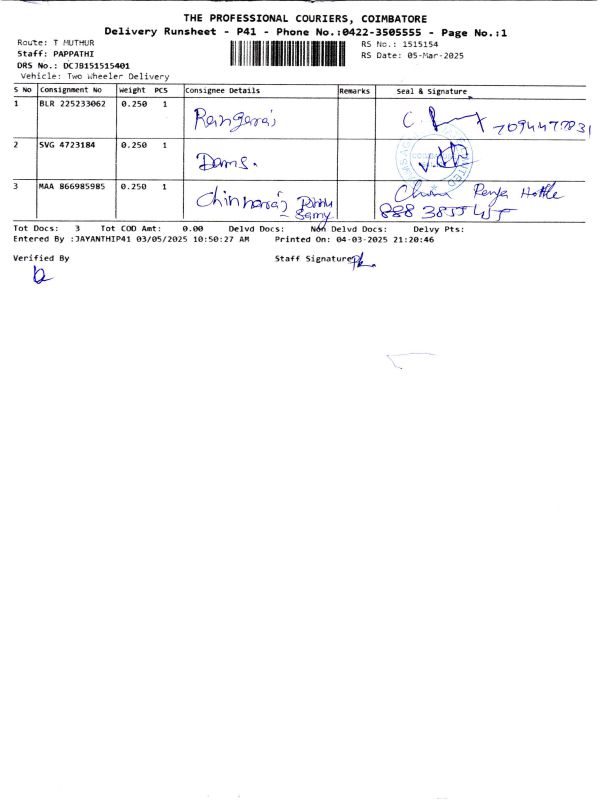 THE PROFESSIONAL COURIERS, COIMBATORE
Delivery Runsheet - P41 - Phone No.:0422-3505555 - Page No.:1
Route: T MUTHUR
RS No.: 1515154
Staff: PAPPATHI
RS Date: 05-Mar-2025
DRS No.: DCJB151515401
Vehicle: Two Wheeler Delivery
S No Consignment No Weight PCS Consignee Details Remarks Seal & Signature
1 BLR 225233062 0.250 1 Rangaraj C.
2 SVG 4723184 0.250 1 Dams.
3 MAA 866985985 0.250 1 Chinnaraj
Samy
Tot Docs: 3 Tot COD Amt: 0.00 Delvd Docs: Non Delvd Docs: Delvy Pts:
Entered By :JAYANTHIP41 03/05/2025 10:50:27 AM Printed On: 04-03-2025 21:20:46
Verified By Staff Signature